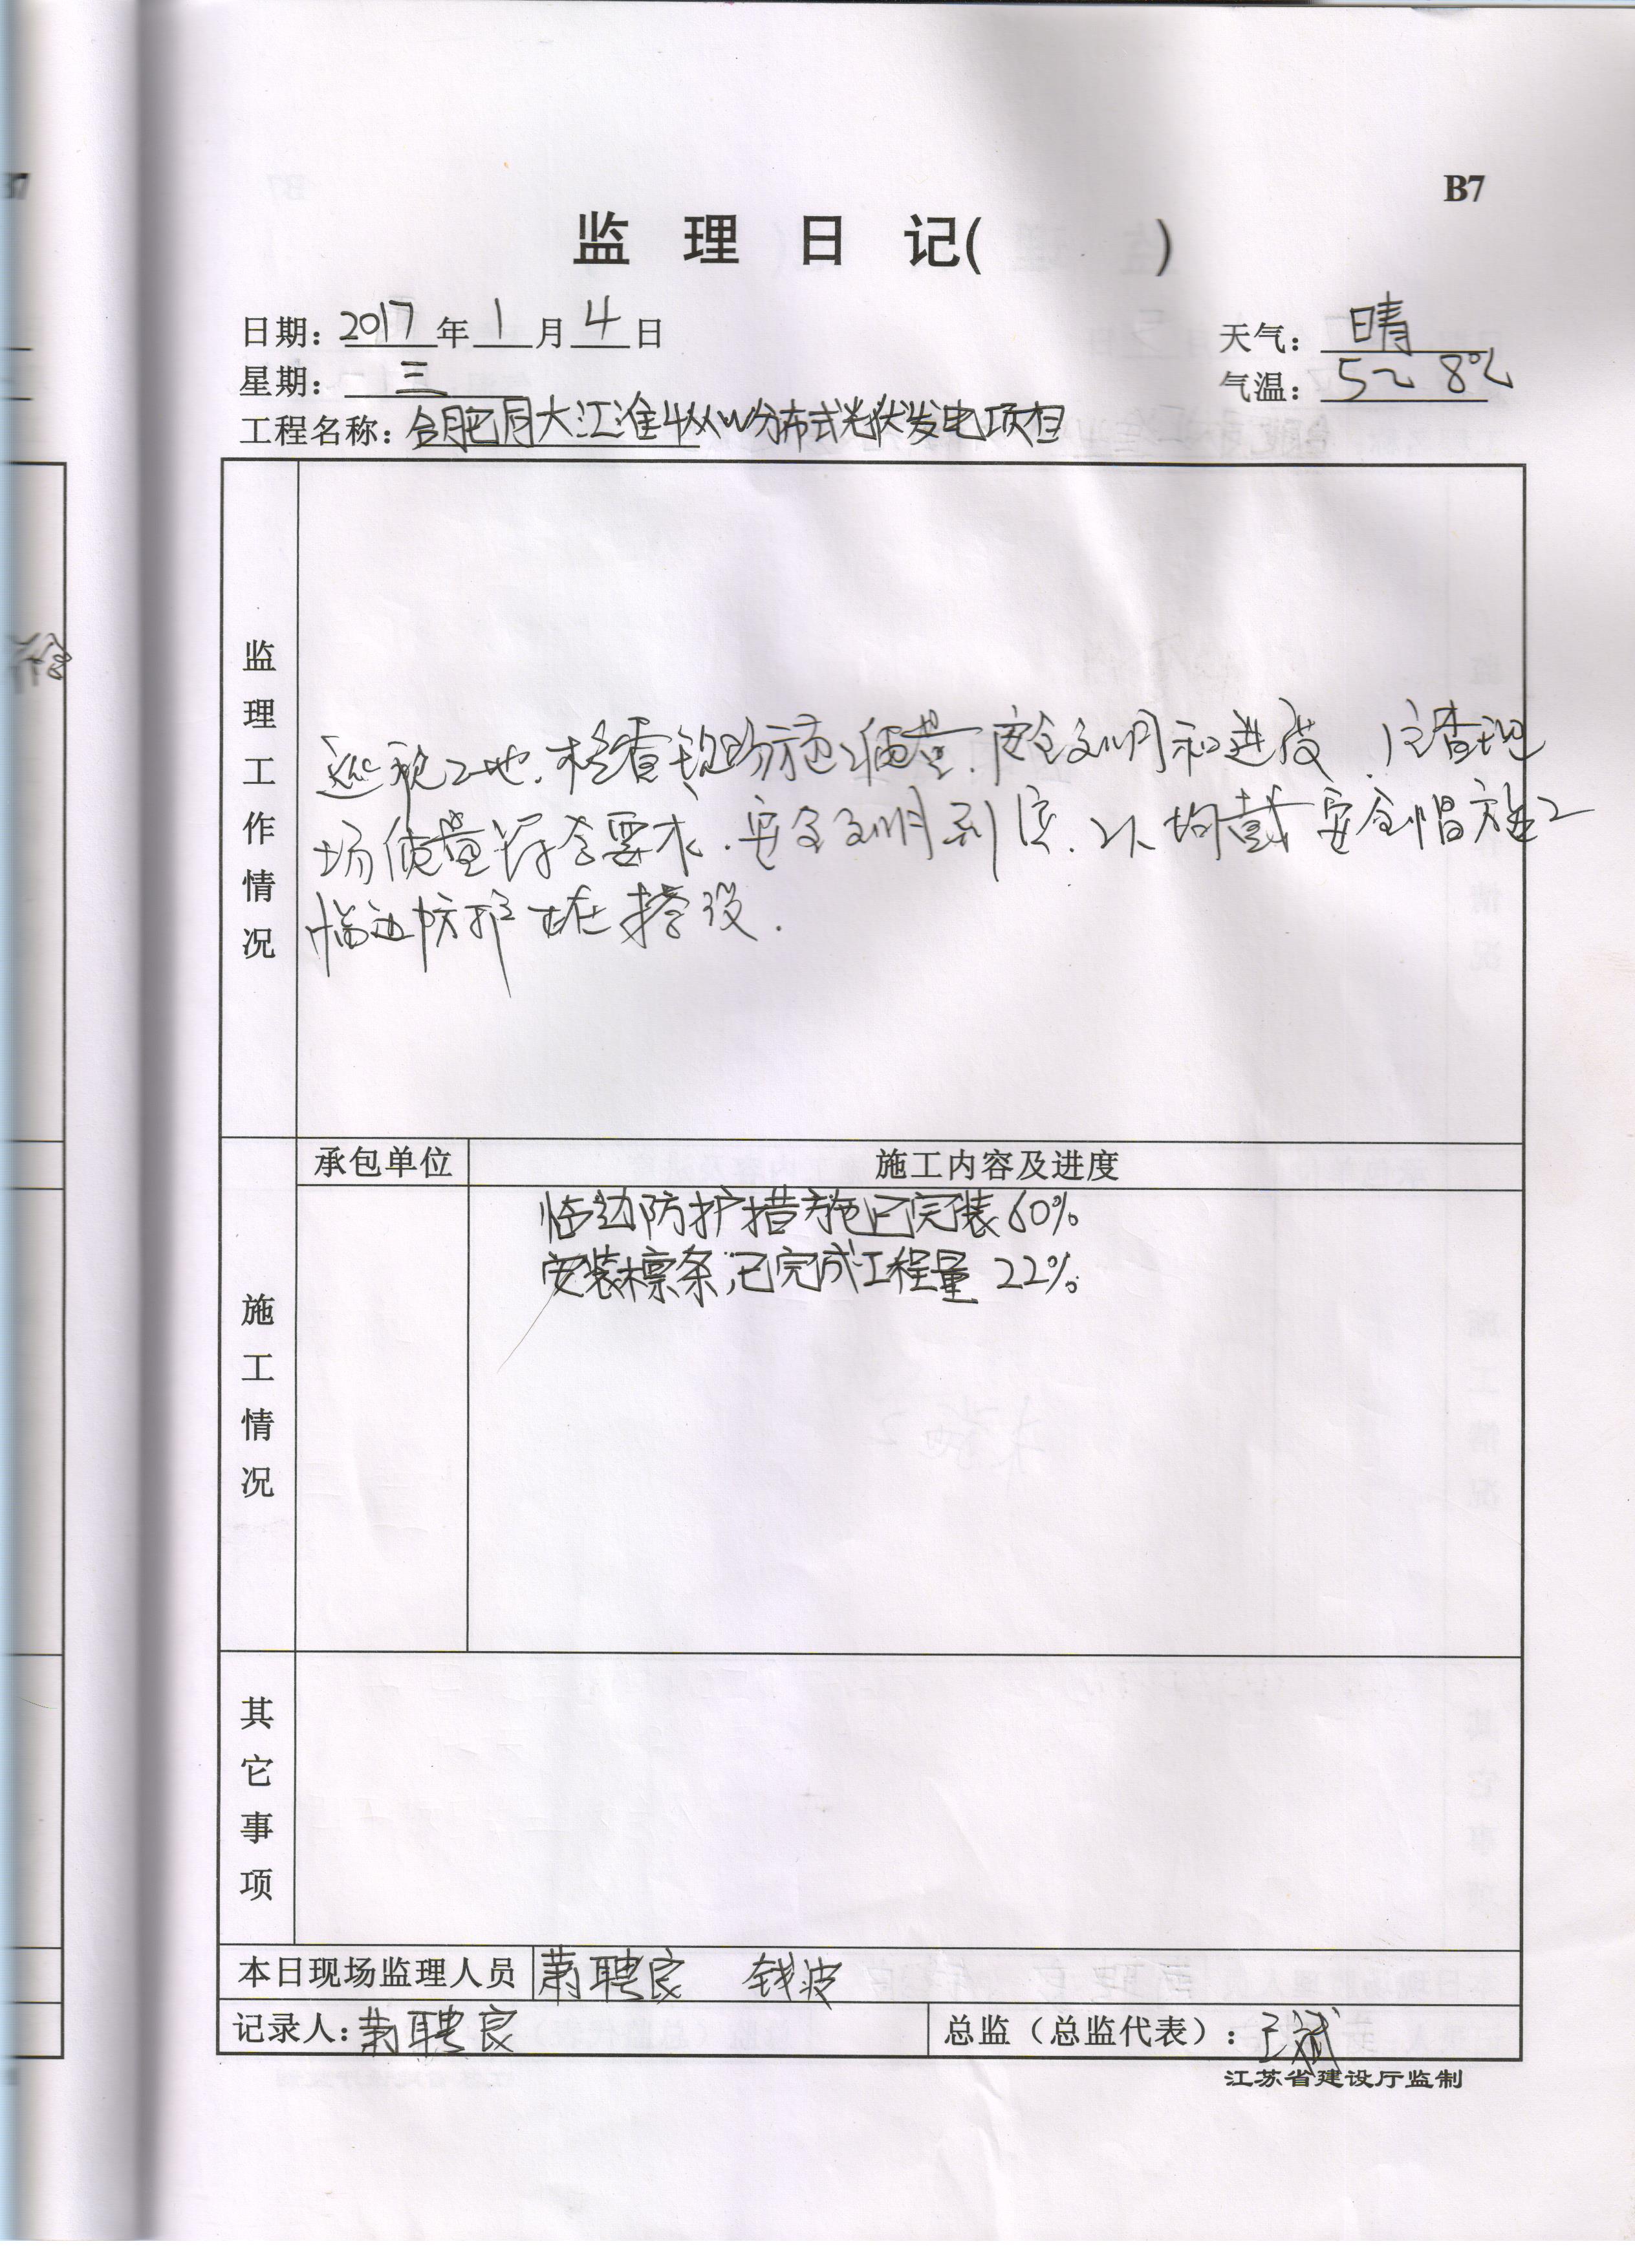 B7
监 理 日 记( )
日期: 2017 年 1 月 4 日
天气: 晴
星期: 三
气温: 5~8℃
工程名称: 合肥月大江淮4MW分布式光伏发电项目
监理工作情况
巡视工地.检查现场施工质量.安全文明和进度.经查现
场质量符合要求.安全文明到位.工人均戴安全帽施工
临边防护正在搭设.
施工情况
承包单位
施工内容及进度
临边防护措施已完装60%
安装檩条,已完成工程量22%.
其它事项
本日现场监理人员 萧聘良 钱波
记录人: 萧聘良
总监(总监代表): 王斌
江苏省建设厅监制